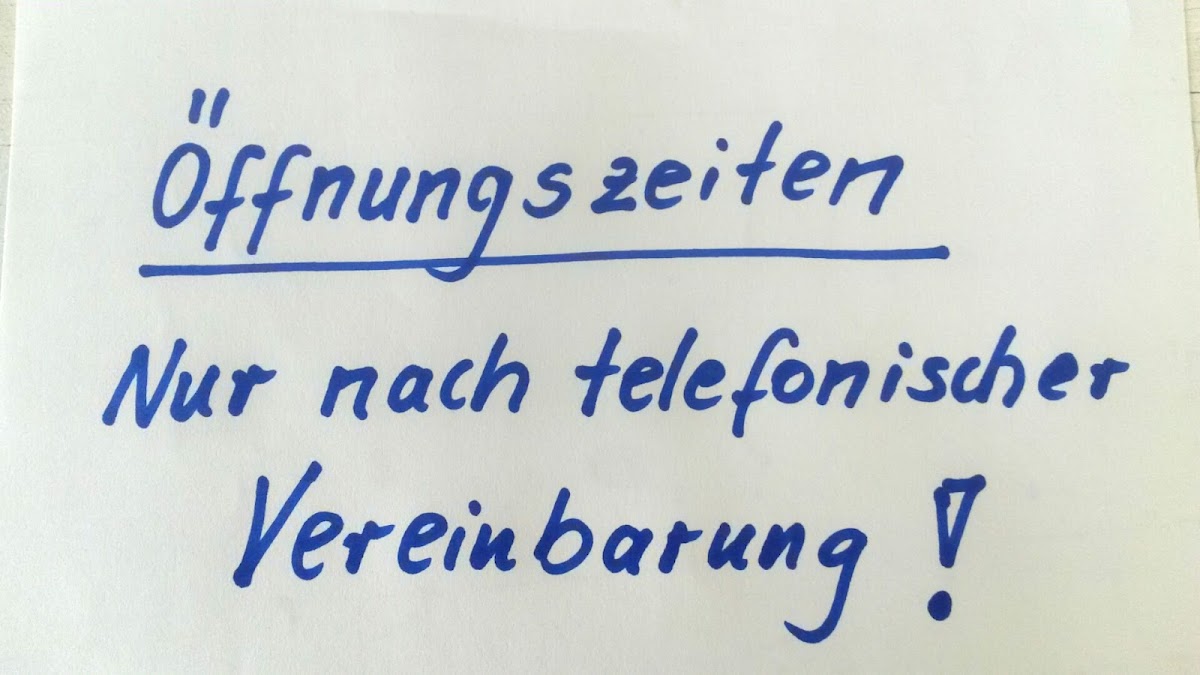 Öffnungszeiten
Nur nach telefonischer
Vereinbarung !